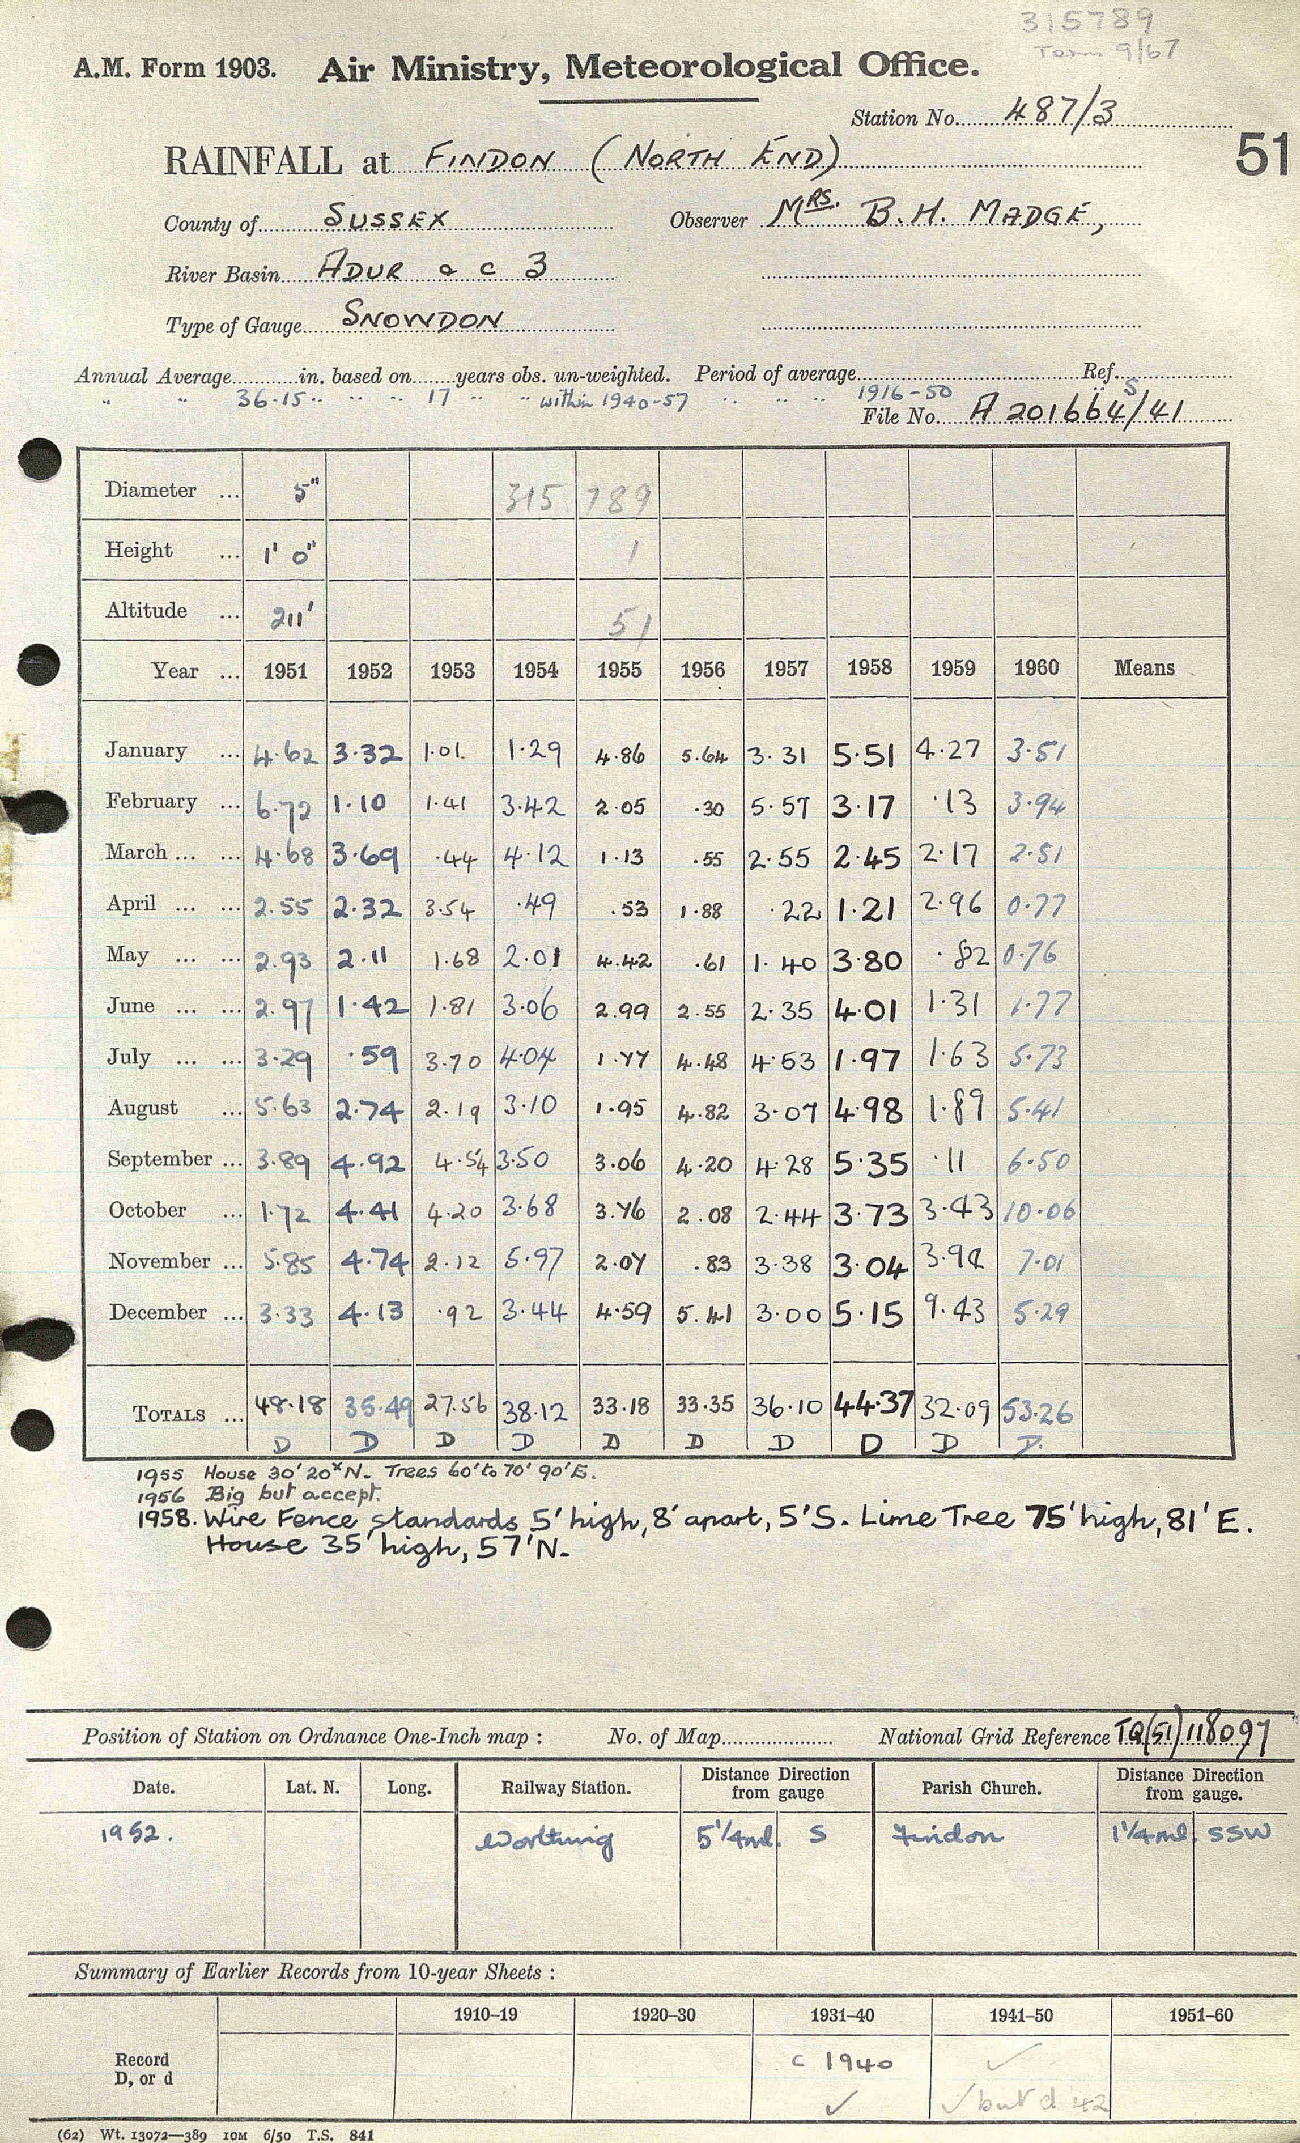 315789
Term 9/67
A.M. Form 1903. Air Ministry, Meteorological Office.
Station No. 487/3
51
RAINFALL at FINDON (NORTH END)
County of SUSSEX Observer MRS. B.H. MADGE,
River Basin ADUR a c 3
Type of Gauge SNOWDON
Annual Average in. based on years obs. un-weighted. Period of average Ref.
" " 36.15 " " " 17 " " within 1940-57 " " " 1916-50 " S
File No. A 201664/41
Diameter ... 5" 315 789
Height ... 1' 0" 1
Altitude ... 211' 51
Year ... 1951 1952 1953 1954 1955 1956 1957 1958 1959 1960 Means
January ... 4.62 3.32 1.01 1.29 4.86 5.64 3.31 5.51 4.27 3.51
February ... 6.72 1.10 1.41 3.42 2.05 .30 5.57 3.17 .13 3.94
March ... ... 4.68 3.69 .44 4.12 1.13 .55 2.55 2.45 2.17 2.51
April ... ... 2.55 2.32 3.54 .49 .53 1.88 .22 1.21 2.96 0.77
May ... ... 2.93 2.11 1.68 2.01 4.42 .61 1.40 3.80 .82 0.76
June ... ... 2.97 1.42 1.81 3.06 2.99 2.55 2.35 4.01 1.31 1.77
July ... ... 3.29 .59 3.70 4.04 1.77 4.48 4.53 1.97 1.63 5.73
August ... 5.63 2.74 2.19 3.10 1.95 4.82 3.07 4.98 1.89 5.41
September ... 3.89 4.92 4.54 3.50 3.06 4.20 4.28 5.35 .11 6.50
October ... 1.72 4.41 4.20 3.68 3.76 2.08 2.44 3.73 3.43 10.06
November ... 5.85 4.74 2.12 5.97 2.07 .83 3.38 3.04 3.94 7.01
December ... 3.33 4.13 .92 3.44 4.59 5.41 3.00 5.15 9.43 5.29
TOTALS ... 48.18 35.49 27.56 38.12 33.18 33.35 36.10 44.37 32.09 53.26
D D D D D D D D D D.
1955 House 30' 20x N. Trees 60' to 70' 90' E.
1956 Big but accept.
1958. Wire Fence, standards 5' high, 8' apart, 5' S. Lime Tree 75' high, 81' E.
House 35' high, 57' N.
Position of Station on Ordnance One-Inch map : No. of Map National Grid Reference TQ(51)118097
Date. Lat. N. Long. Railway Station. Distance from gauge Direction Parish Church. Distance from gauge. Direction
1952. Worthing 5 1/4 ml. S Findon 1 1/4 ml. SSW
Summary of Earlier Records from 10-year Sheets :
1910–19 1920–30 1931–40 1941–50 1951–60
Record D, or d c 1940 ✓
✓ ✓ but d 42
(62) Wt. 13072—389 10M 6/50 T.S. 841